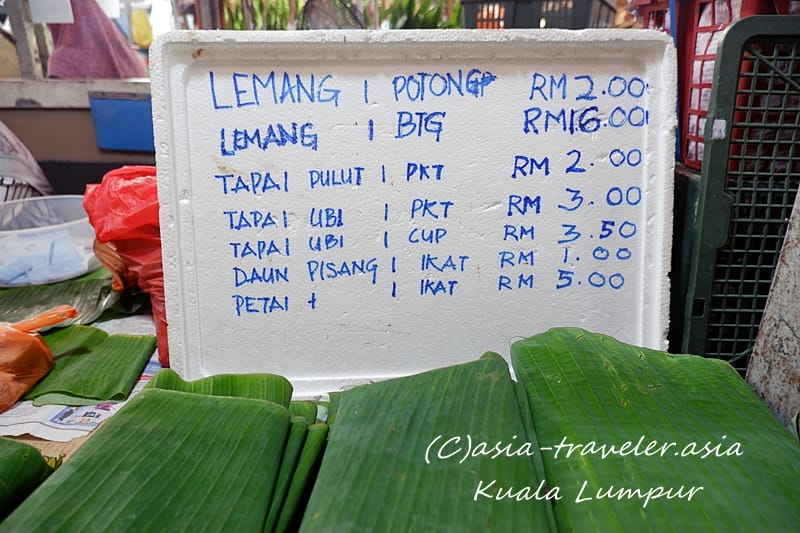 LEMANG 1 POTONG RM 2.00
LEMANG 1 BTG RM 16.00
TAPAI PULUT 1 PKT RM 2.00
TAPAI UBI 1 PKT RM 3.00
TAPAI UBI 1 CUP RM 3.50
DAUN PISANG 1 IKAT RM 1.00
PETAI t 1 IKAT RM 5.00
(C)asia-traveler.asia
Kuala Lumpur